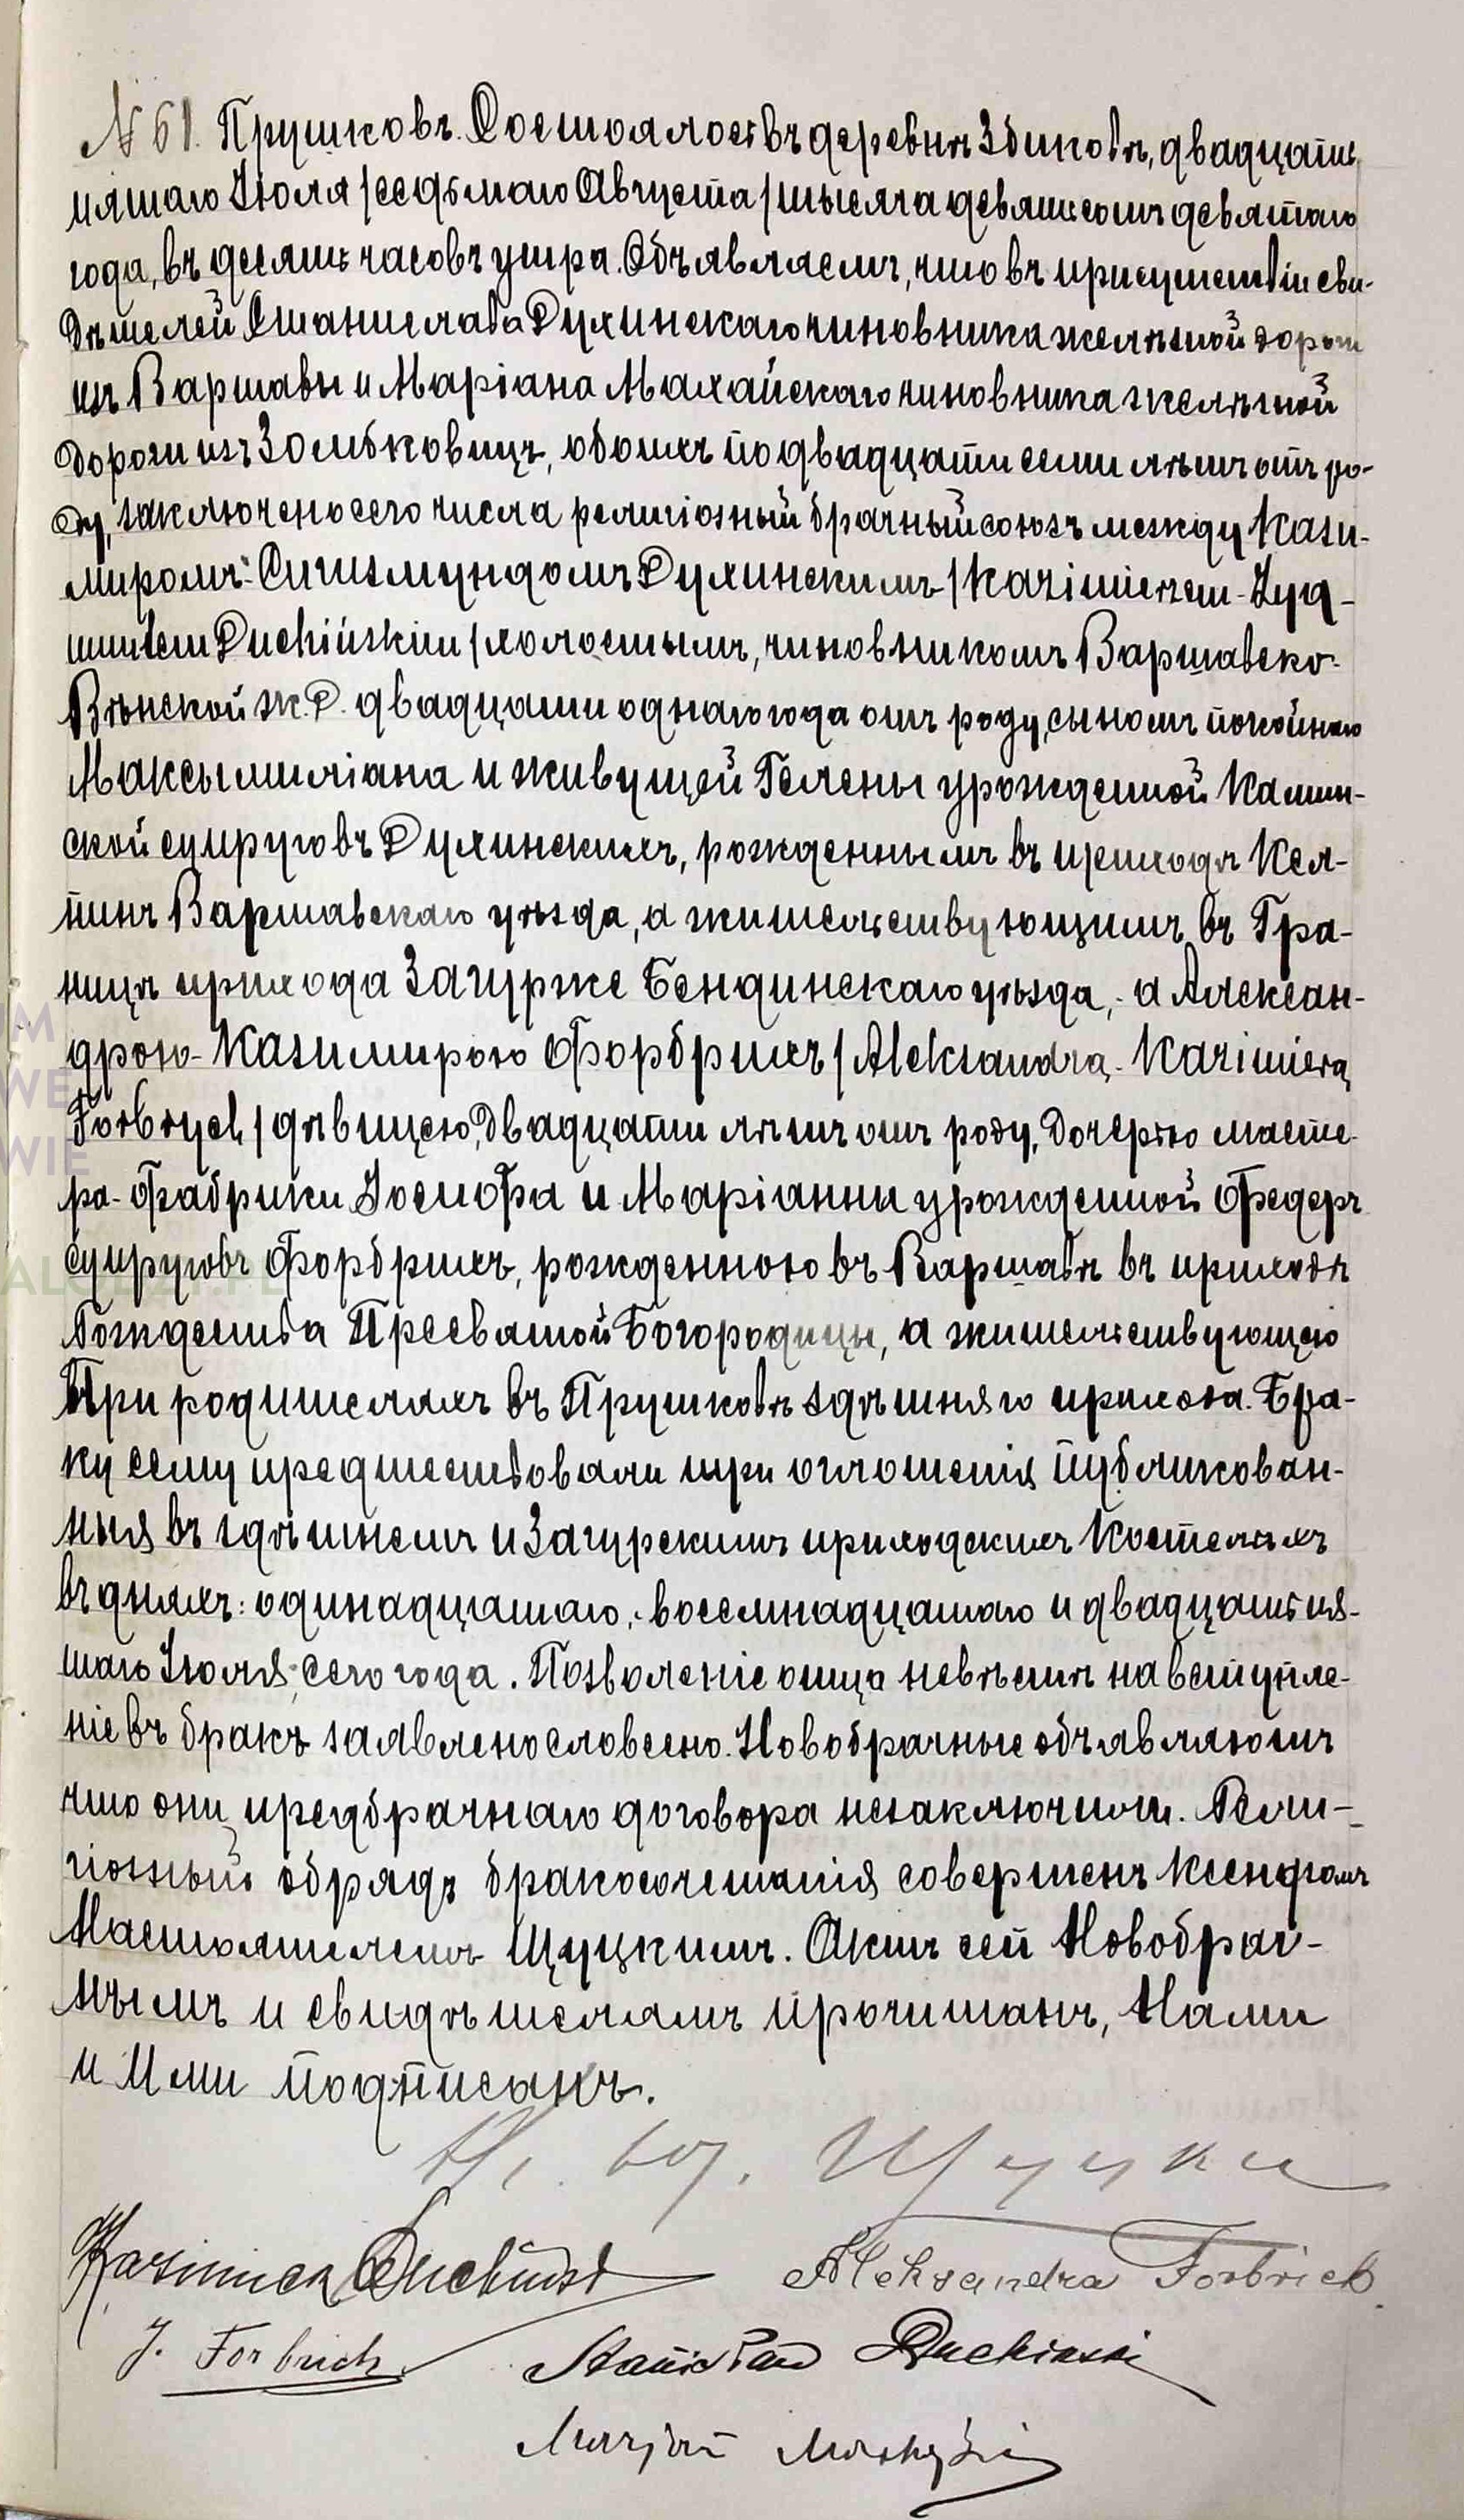 № 61. Прушковъ. Состоялось въ деревнѣ Збиковѣ, двадцать
пятаго Іюля /седьмаго Августа/ тысяча девятьсотъ девятаго
года, въ десять часовъ утра. Объявляемъ, что въ присутствіи сви-
дѣтелей Станислава Духинскаго чиновника желѣзной дороги
изъ Варшавы и Маріана Махайскаго чиновника желѣзной
дороги изъ Зомбковицъ, обоихъ по двадцати семи лѣтъ отъ ро-
ду, заключено сего числа религіозный брачный союзъ между Кази-
миромъ-Сигизмундомъ Духинскимъ /Kazimierzem-Zyg-
muntem Duchińskim/ холостымъ, чиновникомъ Варшавско-
Вѣнской ж. д. двадцати однаго года отъ роду, сыномъ покойнаго
Максымиліана и живущей Гелены урожденной Камин-
ской супруговъ Духинскихъ, рожденнымъ въ приходѣ Кел-
пинъ Варшавскаго уѣзда, а жительствующимъ въ Гра-
ницѣ прихода Загурже Бендинскаго уѣзда, - а Алексан-
дрою-Казимирою Форбрихъ /Aleksandrą-Kazimierą
Forbrych/ дѣвицею, двадцати лѣтъ отъ роду, дочерью масте-
ра-фабрики Іосифа и Маріанны урожденной Федеръ
супруговъ Форбрихъ, рожденною въ Варшавѣ въ приходѣ
Рождества Пресвятой Богородицы, а жительствующею
При родителяхъ въ Прушковѣ здѣшняго прихода. Бра-
ку сему предшествовали три оглошенія публикован-
ныя въ здѣшнемъ и Загурскимъ приходскихъ Костелахъ
въ дняхъ: одинадцатаго, - восемнадцатаго и двадцать пя-
таго Іюля, сего года. Позволеніе отца невѣсты на вступле-
ніе въ бракъ заявлено словесно. Новобрачные объявляютъ
что они предбрачнаго договора незаключили. Рели-
гіозный обрядъ бракосочетанія совершенъ Ксендзомъ
Настоятелемъ Щуцкимъ. Актъ сей Новобрач-
нымъ и свидѣтелямъ прочитанъ, Нами
и Ими подписанъ.
Щуцки
Kazimierz Duchiński Aleksandra Forbrich.
J. Forbrich Stanisław Duchiński
Marjan Machajski